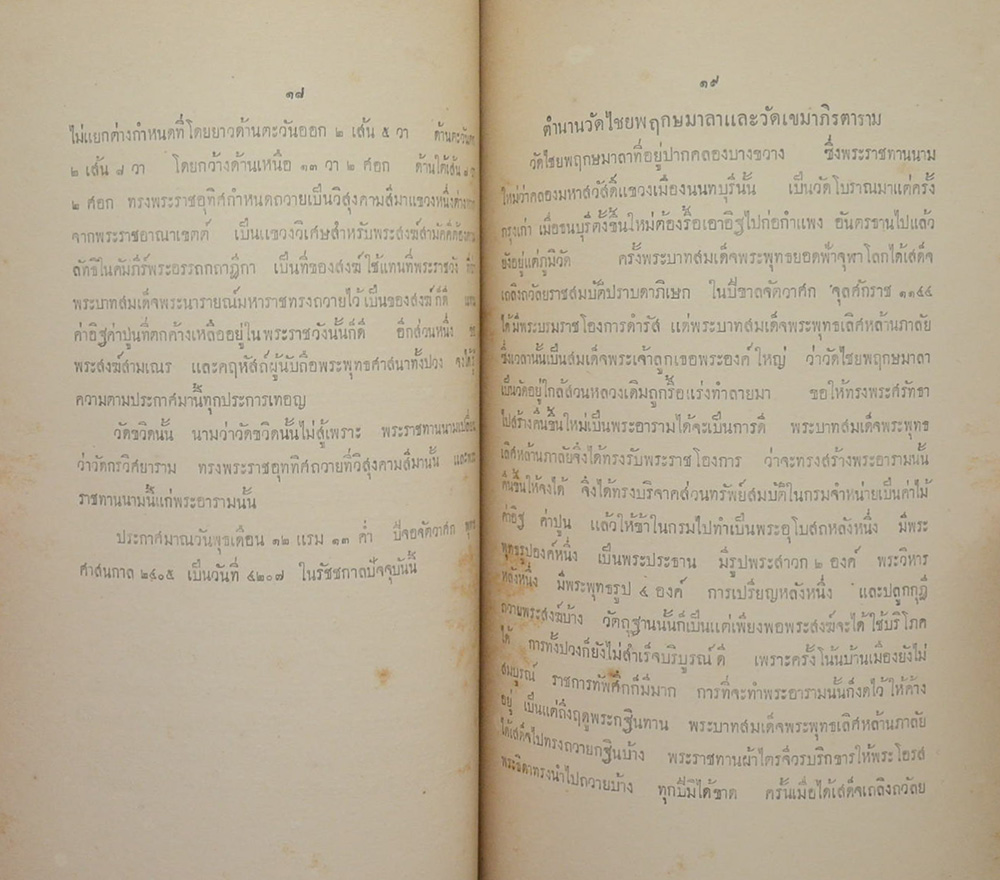 ๑๘
ไม่แยกต่างกำหนดที่โดยยาวด้านตะวันออก ๒ เส้น ๕ วา ด้านตะวันตก
๒ เส้น ๘ วา โดยกว้างด้านเหนือ ๑๓ วา ๒ ศอก ด้านใต้เส้น ๗ วา
๒ ศอก ทรงพระราชอุทิศกำหนดถวายเป็นวิสุงคามสีมาแขวงหนึ่งต่างหาก
จากพระราชอาณาเขตต์ เป็นแขวงวิเศษสำหรับพระสงฆ์สามัคคีต้องตาม
ลัทธิในคัมภีร์พระอรรถกถาฎีกา เป็นที่ของสงฆ์ ใช้แทนที่พระราชวัง ที่
พระบาทสมเด็จพระนารายณ์มหาราชทรงถวายไว้ เป็นของสงฆ์ก็ดี แทน
ค่าอิฐค่าปูนที่ตกค้างเหลืออยู่ในพระราชวังนั้นก็ดี อีกส่วนหนึ่ง ขอ
พระสงฆ์สามเณร และคฤหัสถ์ผู้นับถือพระพุทธศาสนาทั้งปวง จงได้รู้
ความตามประกาศมานี้ทุกประการเทอญ
วัดขวิดนั้น นามว่าวัดขวิดนั้นไม่สู้เพราะ พระราชทานนามเปลี่ยน
ว่าวัดกรวิศยาราม ทรงพระราชอุททิศถวายที่วิสุงคามสีมานั้น และพระ
ราชทานนามนี้แก่พระอารามนั้น
ประกาศมาณวันพุธเดือน ๑๒ แรม ๑๓ ค่ำ ปีจอจัตวาศก พุทธ
ศาสนกาล ๒๔๐๕ เป็นวันที่ ๔๒๐๗ ในรัชชกาลปัจจุบันนี้
๑๙
ตำนานวัดไชยพฤกษมาลาและวัดเขมาภิรตาราม
วัดไชยพฤกษมาลาที่อยู่ปากคลองบางขวาง ซึ่งพระราชทานนาม
ใหม่ว่าคลองมหาสวัสดิ์แขวงเมืองนนทบุรีนั้น เป็นวัดโบราณมาแต่ครั้ง
กรุงเก่า เมื่อธนบุรีตั้งขึ้นใหม่ต้องรื้อเอาอิฐไปก่อกำแพง อันตรธานไปแล้ว
ยังอยู่แต่ภูมิวัด ครั้งพระบาทสมเด็จพระพุทธยอดฟ้าจุฬาโลกได้เสด็จ
เถลิงถวัลยราชสมบัติปราบดาภิเษก ในปีขาลจัตวาศก จุลศักราช ๑๑๔๔
ได้มีพระบรมราชโองการดำรัส แด่พระบาทสมเด็จพระพุทธเลิศหล้านภาลัย
ซึ่งเวลานั้นเป็นสมเด็จพระเจ้าลูกเธอพระองค์ใหญ่ ว่าวัดไชยพฤกษมาลา
เป็นวัดอยู่ใกล้สวนหลวงเดิมถูกรื้อแร่งทำลายมา ขอให้ทรงพระศรัทธา
ไปสร้างคืนขึ้นใหม่เป็นพระอารามได้จะเป็นการดี พระบาทสมเด็จพระพุทธ
เลิศหล้านภาลัยจึงได้ทรงรับพระราชโองการ ว่าจะทรงสร้างพระอารามนั้น
คืนขึ้นให้จงได้ จึงได้ทรงบริจาคส่วนทรัพย์สมบัติในกรมจำหน่ายเป็นค่าไม้
ค่าอิฐ ค่าปูน แล้วให้ข้าในกรมไปทำเป็นพระอุโบสถหลังหนึ่ง มีพระ
พุทธรูปองค์หนึ่ง เป็นพระประธาน มีรูปพระสาวก ๒ องค์ พระวิหาร
หลังหนึ่ง มีพระพุทธรูป ๔ องค์ การเปรียญหลังหนึ่ง และปลูกกุฎี
ถวายพระสงฆ์บ้าง วัตถุฐานนั้นก็เป็นแต่เพียงพอพระสงฆ์จะได้ใช้บริโภค
ได้ การทั้งปวงก็ยังไม่สำเร็จบริบูรณ์ดี เพราะครั้งโน้นบ้านเมืองยังไม่
สมบูรณ์ ราชการทัพศึกก็มีมาก การที่จะทำพระอารามนั้นก็งดไว้ ให้ค้าง
อยู่ เป็นแต่ถึงฤดูพระกฐินทาน พระบาทสมเด็จพระพุทธเลิศหล้านภาลัย
ได้เสด็จไปทรงถวายกฐินบ้าง พระราชทานผ้าไตรจีวรบริกขารให้พระโอรส
พระธิดาทรงนำไปถวายบ้าง ทุกปีมิได้ขาด ครั้นเมื่อได้เสด็จเถลิงถวัลย